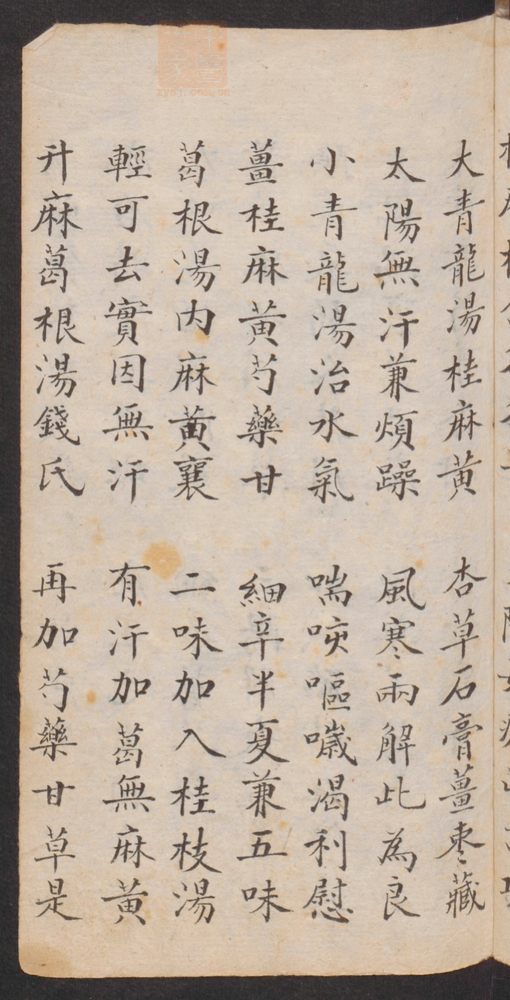 大青龍湯桂麻黃 杏草石膏薑棗藏
太陽無汗兼煩躁 風寒兩解此為良
小青龍湯治水氣 喘咳嘔噦渴利慰
薑桂麻黃芍藥甘 細辛半夏兼五味
葛根湯內麻黃襄 二味加入桂枝湯
輕可去實因無汗 有汗加葛無麻黃
升麻葛根湯錢氏 再加芍藥甘草是